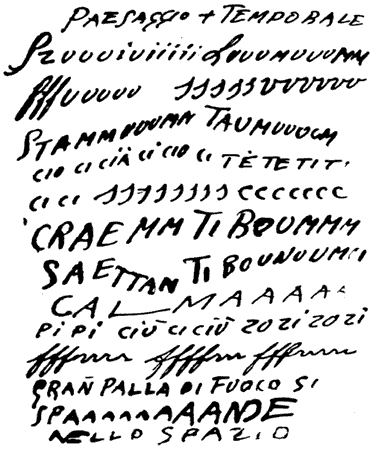 PAESAGGIO + TEMPORALE
Szuuuiuiiiii Louumuuumm
fffuuuuu sssssvvvvvv
STAMMUUUMN TAUMUUUCM
cio ci cià ci cio ci TÈTETIT.
ci ci ssssssss ccccccc
CRAEMM TI BOUMMM
SAETTAN TI BOUNUUMCI
CALMAAAAA
Pi Pi ciù ciciù zozizozi
fffrmm fffffrm fffrmm
GRAÑ PALLA DI FUOCO SI
SPAAAAAAAANDE
NELLO SPAZIO